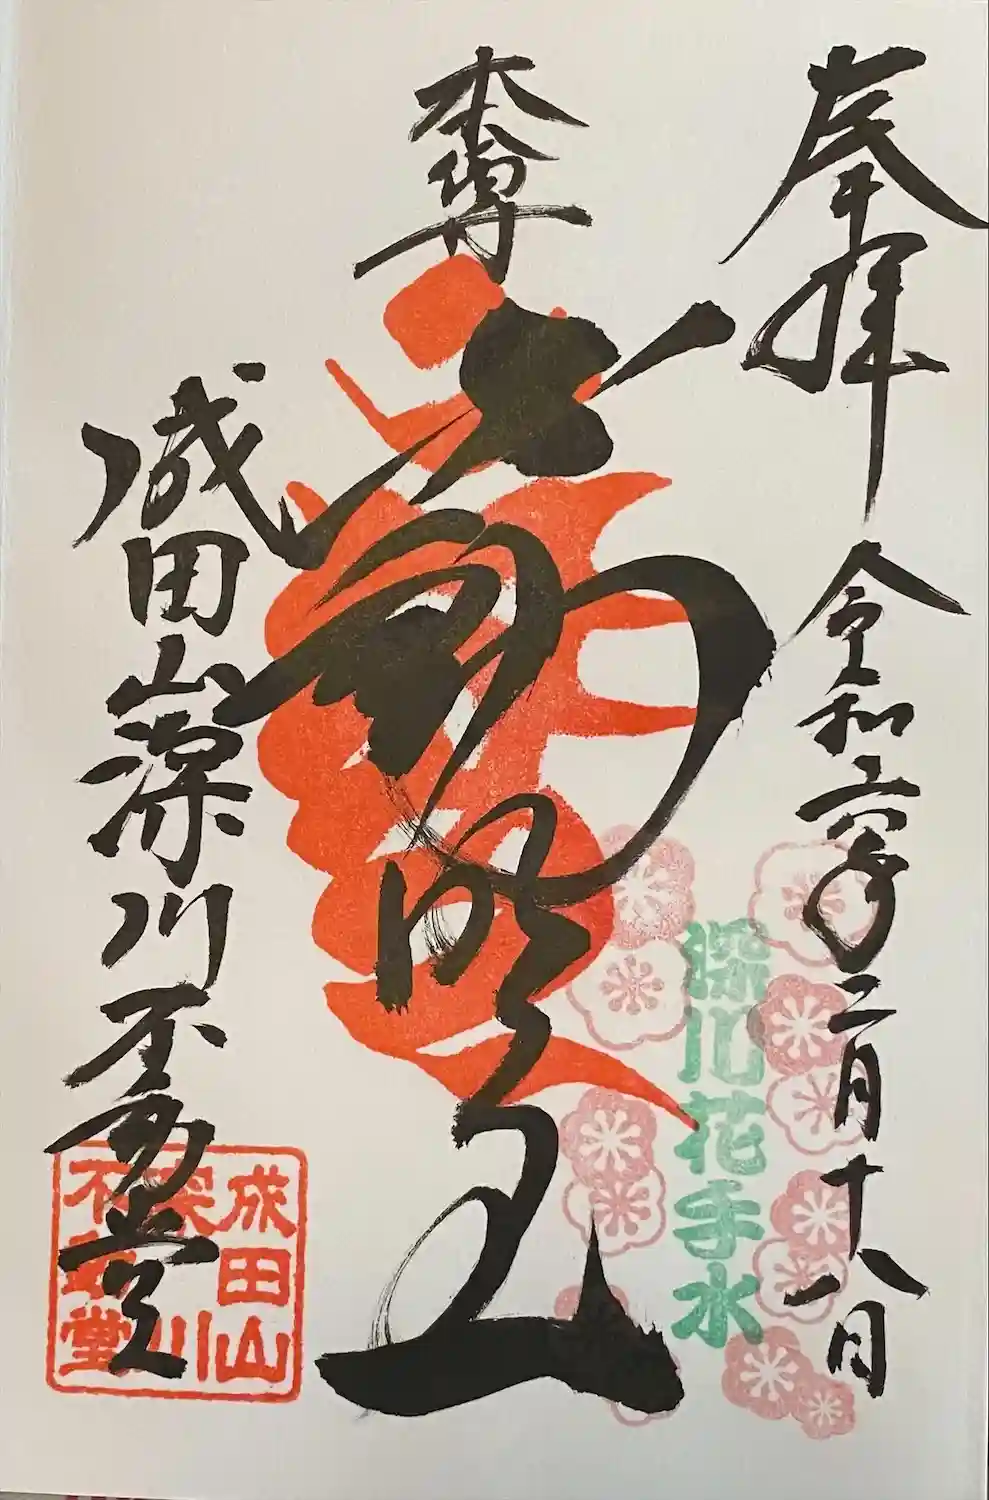 奉拝
令和六年二月十八日
深川花手水
本尊
不動明王
成田山深川不動堂
成田山
深川
不動堂